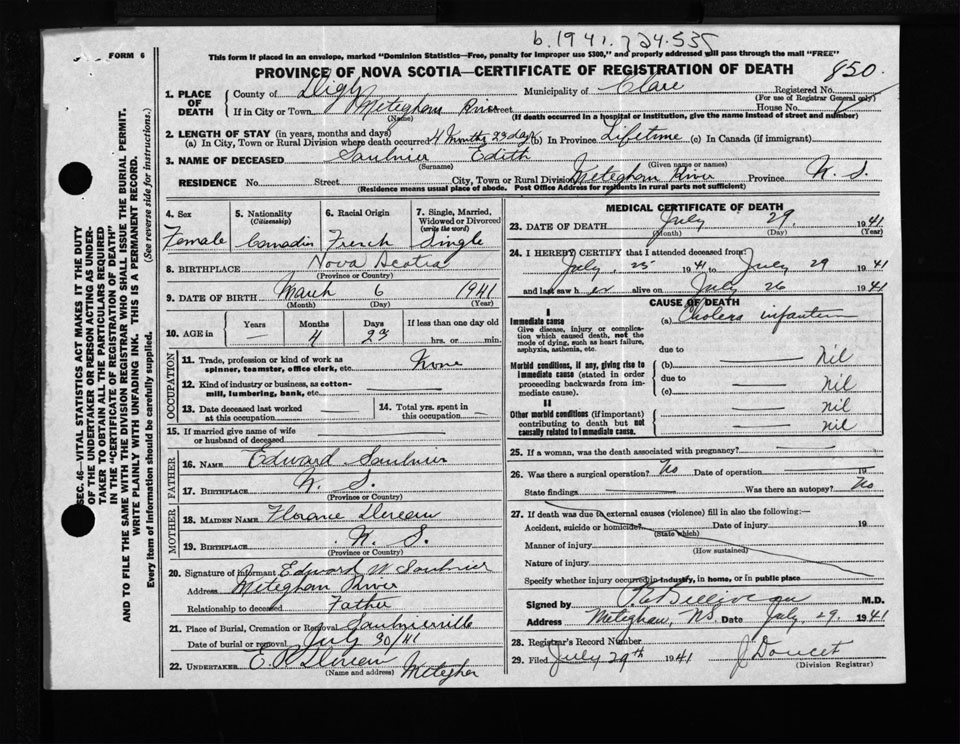 b. 1941. 724.535
FORM 6
This form if placed in an envelope, marked "Dominion Statistics—Free, penalty for improper use $300," and properly addressed will pass through the mail "FREE"
PROVINCE OF NOVA SCOTIA—CERTIFICATE OF REGISTRATION OF DEATH
850.
1. PLACE OF DEATH
County of Digby
Municipality of Clare
Registered No.
(For use of Registrar General only)
If in City or Town Meteghan River Street
House No.
(Name) (If death occurred in a hospital or institution, give the name instead of street and number)
2. LENGTH OF STAY (in years, months and days)
(a) In City, Town or Rural Division where death occurred 4 Months 23 days (b) In Province Lifetime (c) In Canada (if immigrant)
3. NAME OF DECEASED Saulnier Edith
(Surname) (Given name or names)
RESIDENCE No. Street City, Town or Rural Division Meteghan River Province N. S.
(Residence means usual place of abode. Post Office Address for residents in rural parts not sufficient)
4. Sex
Female
5. Nationality (Citizenship)
Canadian
6. Racial Origin
French
7. Single, Married, Widowed or Divorced (write the word)
Single
8. BIRTHPLACE Nova Scotia
(Province or Country)
9. DATE OF BIRTH March 6 1941
(Month) (Day) (Year)
10. AGE in
Years Months Days If less than one day old
— 4 23 hrs. or min.
OCCUPATION
11. Trade, profession or kind of work as spinner, teamster, office clerk, etc. None
12. Kind of industry or business, as cotton-mill, lumbering, bank, etc.
13. Date deceased last worked at this occupation
14. Total yrs. spent in this occupation
15. If married give name of wife or husband of deceased
FATHER
16. NAME Edward Saulnier
17. BIRTHPLACE N. S.
(Province or Country)
MOTHER
18. MAIDEN NAME Florane
19. BIRTHPLACE N. S.
(Province or Country)
20. Signature of informant Edward W Saulnier
Address Meteghan River
Relationship to deceased Father
21. Place of Burial, Cremation or Removal Saulnierville
Date of burial or removal July 30/41
22. UNDERTAKER E. P. Meteghan
(Name and address)
MEDICAL CERTIFICATE OF DEATH
23. DATE OF DEATH July 29 1941
(Month) (Day) (Year)
24. I HEREBY CERTIFY that I attended deceased from:
July, 25 1941 to July 29 1941
and last saw her alive on July 26 1941
CAUSE OF DEATH
I
Immediate cause
(a) Cholera infantum
Give disease, injury or complication which caused death, not the mode of dying, such as heart failure, asphyxia, asthenia, etc.
due to
Morbid conditions, if any, giving rise to immediate cause (stated in order proceeding backwards from immediate cause).
(b) Nil
due to
(c) nil
II
Other morbid conditions (if important) contributing to death but not causally related to immediate cause.
nil
nil
25. If a woman, was the death associated with pregnancy?
26. Was there a surgical operation? No Date of operation 19
State findings Was there an autopsy? No
27. If death was due to external causes (violence) fill in also the following:—
Accident, suicide or homicide? Date of injury 19
(State which)
Manner of injury
(How sustained)
Nature of injury
Specify whether injury occurred in industry, in home, or in public place
Signed by Belliveau M.D.
Address Meteghan, N.S. Date July, 29. 1941
28. Registrar's Record Number
29. Filed July 29th 1941 J Doucet
(Division Registrar)
SEC. 46—VITAL STATISTICS ACT MAKES IT THE DUTY
OF THE UNDERTAKER OR PERSON ACTING AS UNDER-
TAKER TO OBTAIN ALL THE PARTICULARS REQUIRED
IN THE "CERTIFICATE OF REGISTRATION OF DEATH"
AND TO FILE THE SAME WITH THE DIVISION REGISTRAR WHO SHALL ISSUE THE BURIAL PERMIT.
WRITE PLAINLY WITH UNFADING INK. THIS IS A PERMANENT RECORD.
Every item of information should be carefully supplied. (See reverse side for instructions.)